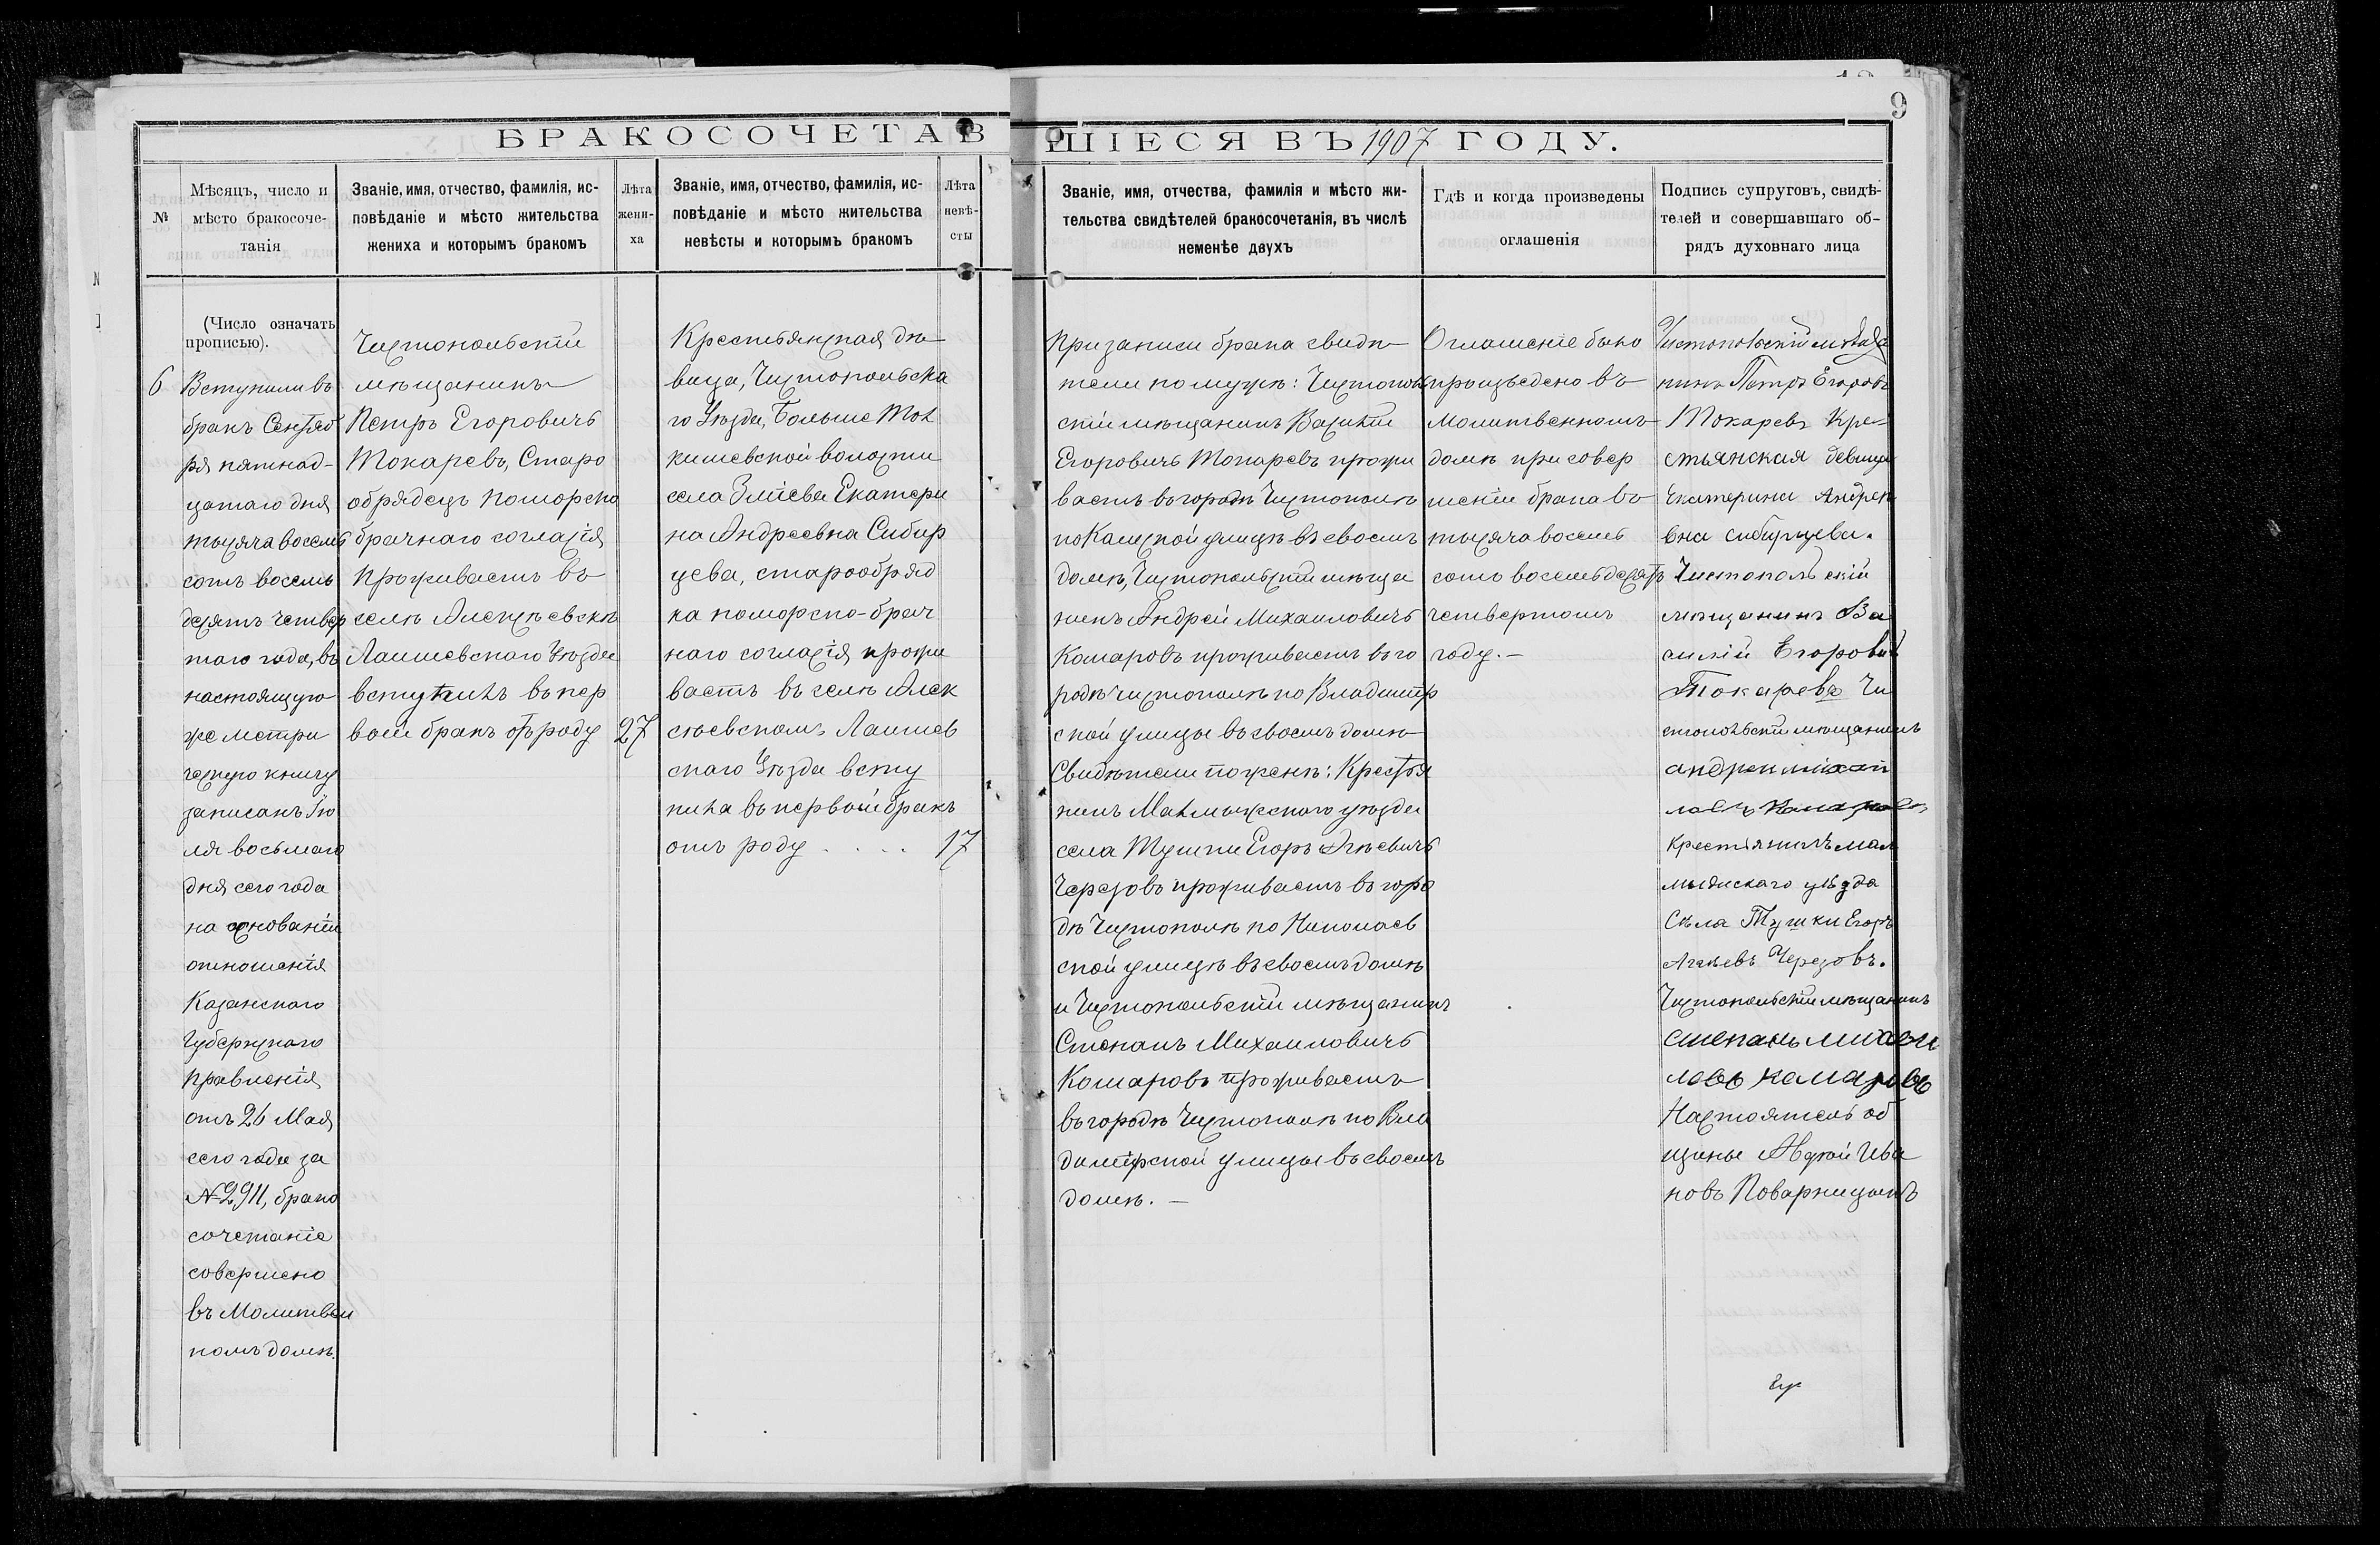 9
БРАКОСОЧЕТАВ
ШІЕСЯ ВЪ 1907 ГОДУ.
№
Мѣсяцъ, число и
мѣсто бракосоче-
танія
Званіе, имя, отчество, фамилія, ис-
повѣданіе и мѣсто жительства
жениха и которымъ бракомъ
Лѣта
жени-
ха
Званіе, имя, отчество, фамилія, ис-
повѣданіе и мѣсто жительства
невѣсты и которымъ бракомъ
Лѣта
невѣ-
сты
Званіе, имя, отчества, фамилія и мѣсто жи-
тельства свидѣтелей бракосочетанія, въ числѣ
неменѣе двухъ
Гдѣ и когда произведены
оглашенія
Подпись супруговъ, свидѣ-
телей и совершавшаго об-
рядъ духовнаго лица
(Число означать
прописью).
6
Вступили въ
бракъ Сентяб
ря пятнад-
цатаго дня
тысяча восемь
сотъ восемь
десятъ четвер
таго года, въ
настоящую
же метри
ческую книгу
записанъ Ію
ля восьмаго
дня сего года
на основаніи
отношенія
Казанскаго
Губернскаго
правленія
отъ 26 Мая
сего года за
№ 2911, брако
сочетаніе
совершено
въ Молитвен
номъ домѣ.
Чистопольскій
мѣщанинъ
Петръ Егоровичъ
Токаревъ, Старо
обрядецъ поморско
брачнаго согласія
проживаетъ въ
селѣ Алексѣевскѣ
Лаишевскаго Уѣзда
вступилъ въ пер
вый бракъ отъ роду
27
Крестьянская дѣ
вица, Чистопольска
го Уѣзда, Больше Тол
кишевской волости
села Зміева Екатери
на Андреевна Сибир
цева, старообряд
ка поморско-брач
наго согласія прожи
ваетъ въ селѣ Алек
сѣевскомъ Лаишев
скаго Уѣзда всту
пила въ первый бракъ
отъ роду . . . .
17
При записи брака свидѣ
тели по мужѣ: Чистополь
скій мѣщанинъ Василій
Егоровичъ Токаревъ прожи
ваетъ въ городѣ Чистополѣ
по Казанской улицѣ въ своемъ
домѣ, Чистопольскій мѣща
нинъ Андрей Михаиловичъ
Комаровъ проживаетъ въ го
родѣ Чистополѣ по Владимір
ской улицы въ своемъ домѣ
Свидѣтели по женѣ: Крестья
нинъ Малмыжскаго уѣзда
села Тушки Егоръ Агѣевичъ
Черезовъ проживаетъ въ горо
дѣ Чистополѣ по Николаев
ской улицѣ въ своемъ домѣ
и Чистопольскій мѣщанинъ
Степанъ Михаиловичъ
Комаровъ проживаетъ
въ городѣ Чистополѣ по Вла
димірской улицы въ своемъ
домѣ. —
Оглашеніе было
произведено въ
Молитвенномъ
домѣ при совер
шеніи брака въ
тысяча восемь
сотъ восемьдесятъ
четвертомъ
году. —
Чистопольскій мѣща
нинъ Петръ Егоровъ
Токаревъ Кре-
стьянская девица
Екатерина Андрее
вна сибирцева.
Чистопольскій
мѣщанинъ Ва
силій Егоровъ
Токаревъ Чи
стопольскій мѣщанинъ
андреи михаи
ловъ Комаровъ
Крестіянинъ мал
мыжскаго уѣзда
Села Тушки Егоръ
Агѣевъ Черезовъ.
Чистопольскій мѣщанинъ
степанъ михаи
ловъ комаровъ
Настоятель об
щины Ива
новъ Поварницынъ